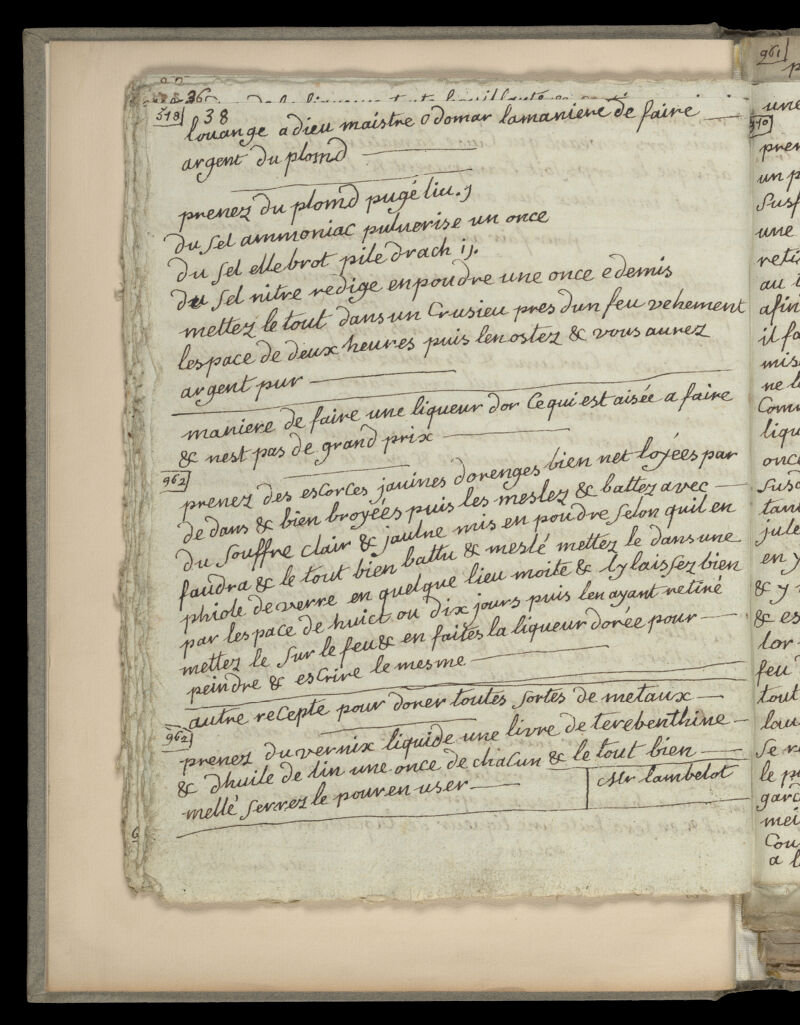 36
518 38
louange a dieu maistre odomar la maniere de faire
argent du plomd
prenez du plomd pugé liu. j
du sel ammoniac pulverise un once
du sel ellebrot pilé drach ij.
du sel nitre redige en poudre une once e demis
mettez le tout dans un Crusieu pres dun feu vehement
lespace de deux heures puis lenostez & vous aurez
argent pur
maniere de faire une liqueur dor Ce qui est aisée a faire
& nest pas de grand prix
962
prenez des escorces jauines dorenges bien net loyées par
de dans & bien broyées puis les meslez & battez avec
du souffre clair & jaulne mis en poudre selon quil en
faudra & le tout bien battu & meslé mettez le dans une
phiole de verre en quelque lieu moite & ly laissez bien
par lespace de huict ou dix jours puis len ayant retiré
mettez le sur le feu & en faites la liqueur dorée pour
peindre & escrire le mesme
autre recepte pour dorer toutes sortes de metaux
962
prenez du vernix liquide une livre de terebenthine
& dhuile de lin une once de chacun & le tout bien
mellé serrez le pour en user
Mr lambelot
961
une
310
pren
un p
susf
une
reti
au t
afin
il fa
mis
ne l
Com
liqu
once
susd
tan
jule
en y
& y
& es
lor
feu
tout
lau
se r
le p
garc
mei
Cou
a l